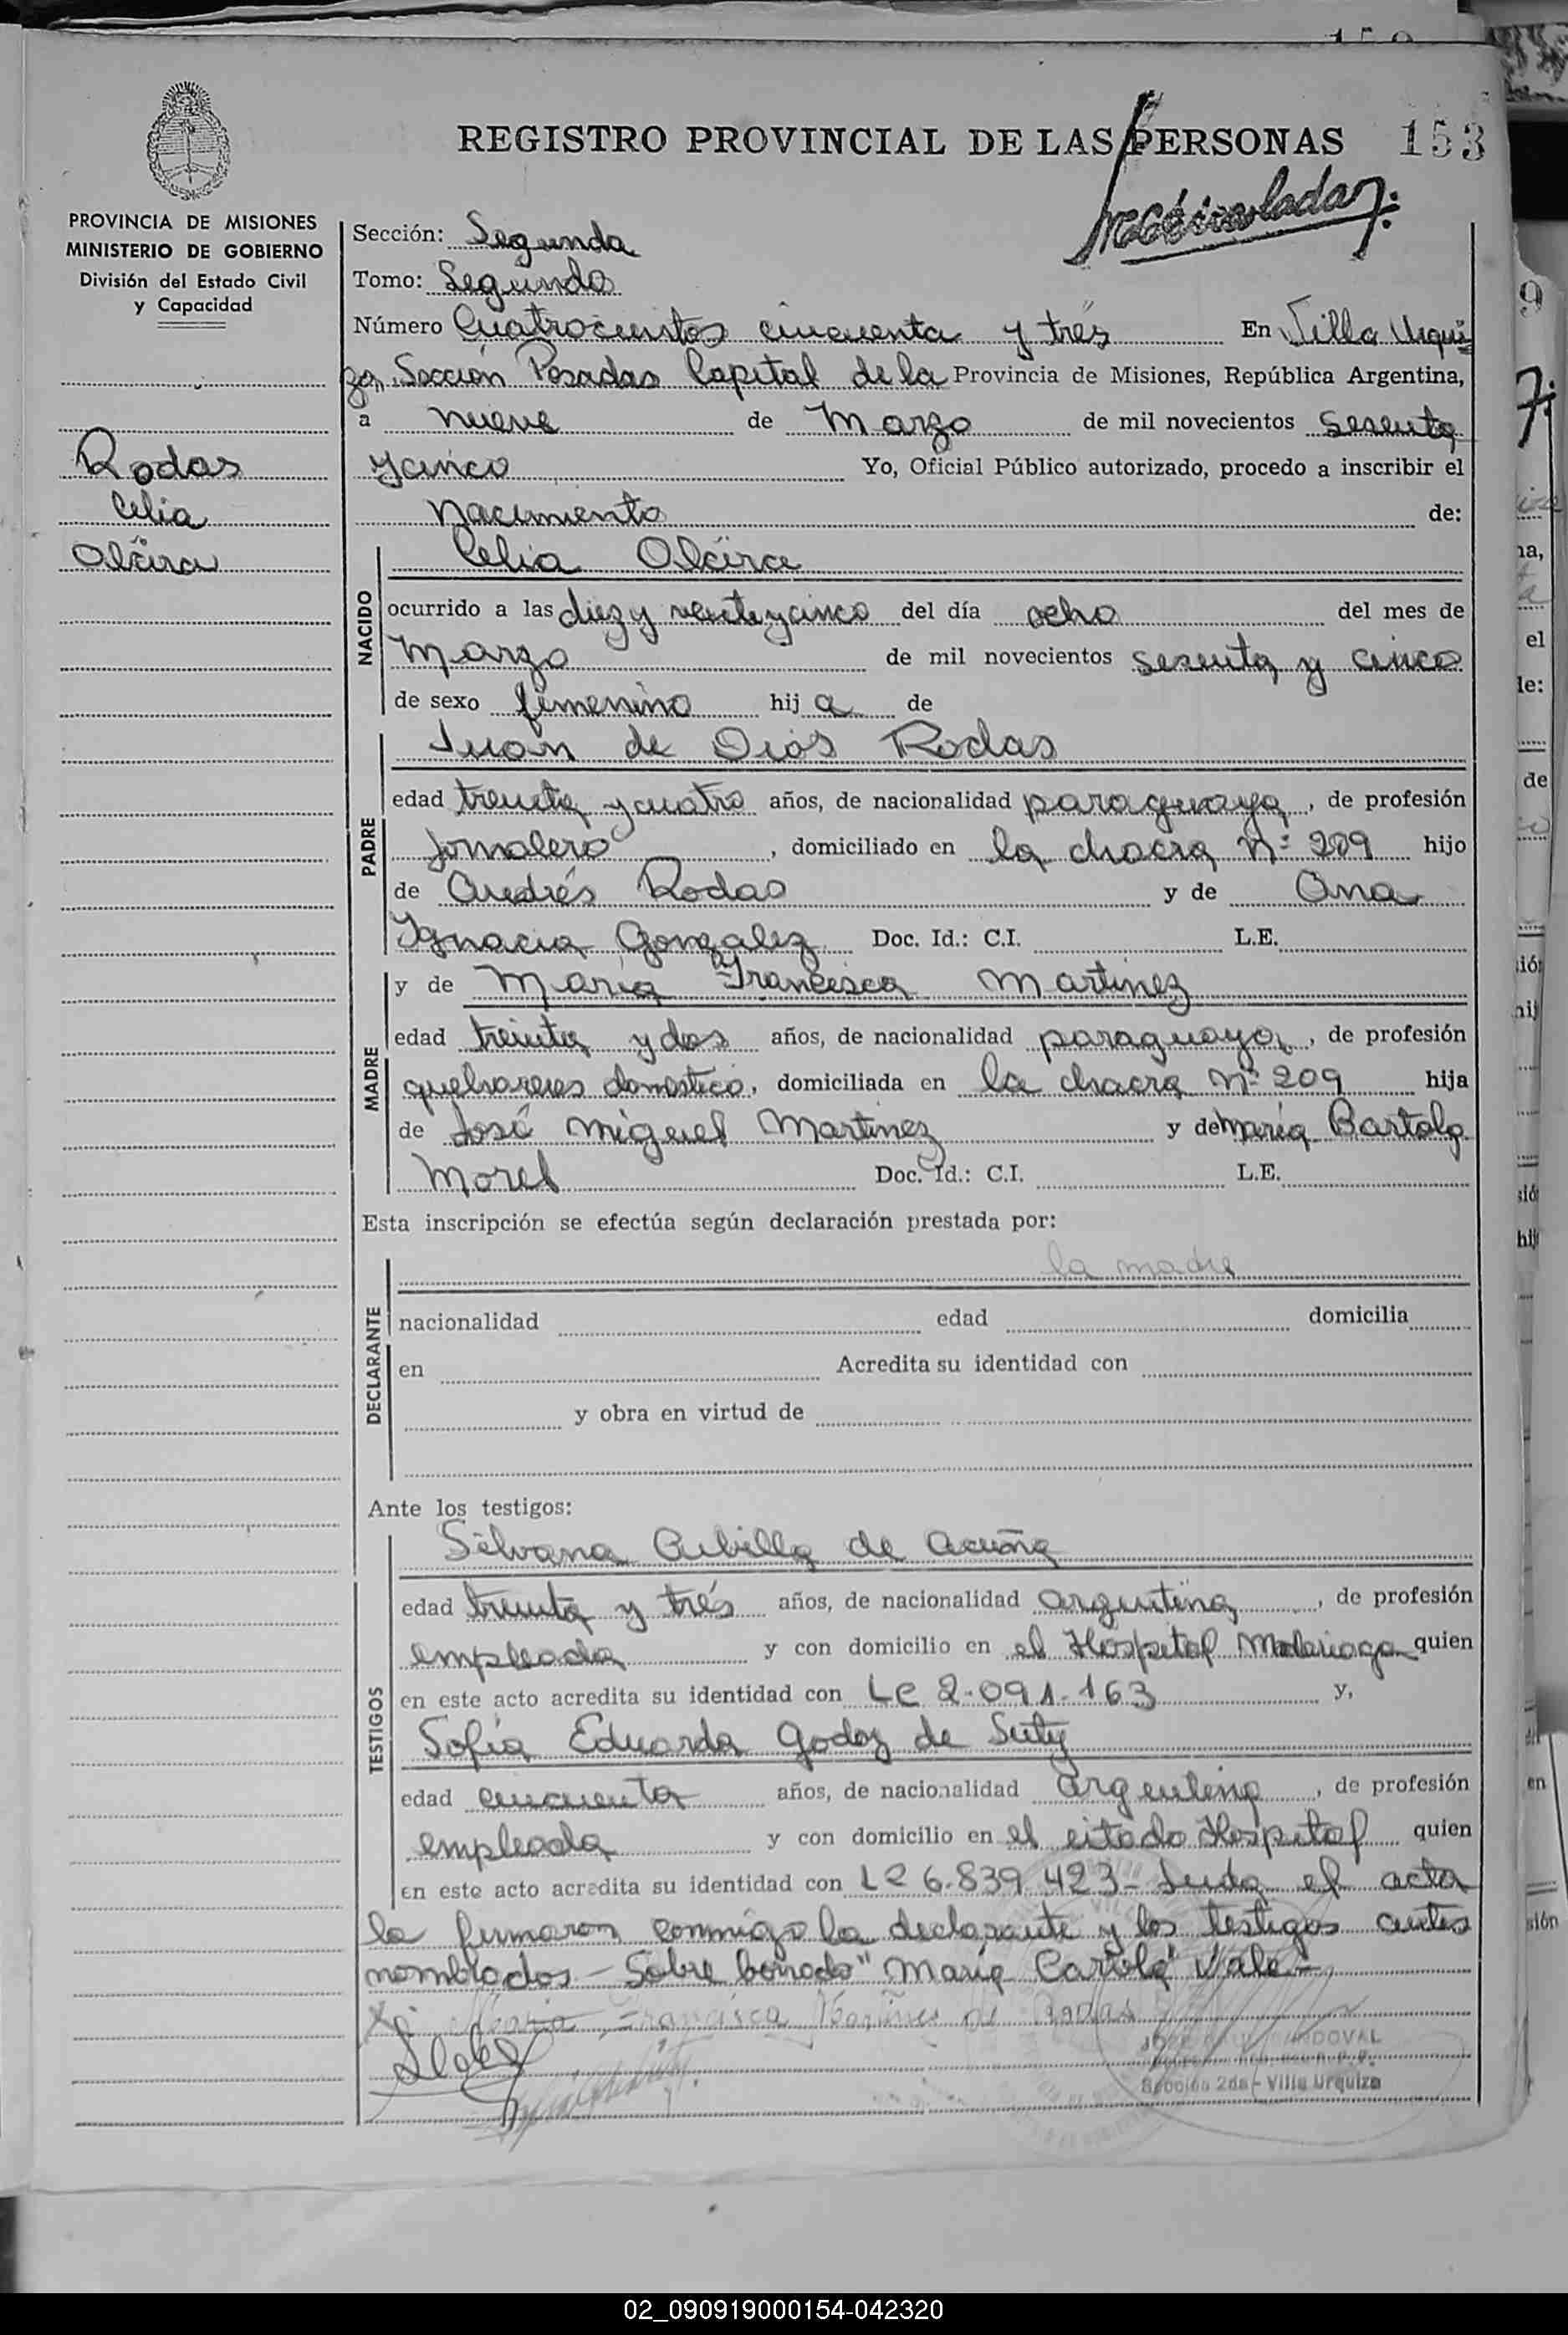 REGISTRO PROVINCIAL DE LAS PERSONAS 153
PROVINCIA DE MISIONES
MINISTERIO DE GOBIERNO
División del Estado Civil
y Capacidad
Rodas
Celia
Alcira
Sección: Segunda
Tomo: Segundo
Número Cuatrocientos cincuenta y trés En Villa Urqui
za, Sección Posadas Capital de la Provincia de Misiones, República Argentina,
a nueve de Marzo de mil novecientos sesenta
y cinco Yo, Oficial Público autorizado, procedo a inscribir el
nacimiento de:
NACIDO
Celia Alcira
ocurrido a las diez y veinteycinco del día ocho del mes de
Marzo de mil novecientos sesenta y cinco
de sexo femenino hij a de
PADRE
Juan de Dios Rodas
edad treinta y cuatro años, de nacionalidad paraguaya, de profesión
Jornalero, domiciliado en la chacra Nº 209 hijo
de Andrés Rodas y de Ana
Ignacia Gonzalez Doc. Id.: C.I. L.E.
MADRE
y de María Francisca Martinez
edad treinta y dos años, de nacionalidad paraguaya, de profesión
quehaceres domestico, domiciliada en la chacra Nº 209 hija
de José Miguel Martinez y de María Bartola
Morel Doc. Id.: C.I. L.E.
Esta inscripción se efectúa según declaración prestada por:
DECLARANTE
la madre
nacionalidad edad domicilia
en Acredita su identidad con
y obra en virtud de
Ante los testigos:
TESTIGOS
Silvana Cubilla de Acuña
edad treinta y trés años, de nacionalidad argentina, de profesión
empleada y con domicilio en el Hospital Madariaga quien
en este acto acredita su identidad con Lc 2.091.163 y,
Sofía Eduarda Godoy de
edad cincuenta años, de nacionalidad argentina, de profesión
empleada y con domicilio en el citado Hospital quien
en este acto acredita su identidad con Lc 6.839.423- Leida el acta
la firmaron conmigo la declarante y los testigos antes
nombrados - Sobre borrado "María Vale-
María Francisca Martines de Rodas
SANDOVAL
Sección 2da - Villa Urquiza
02_090919000154-042320